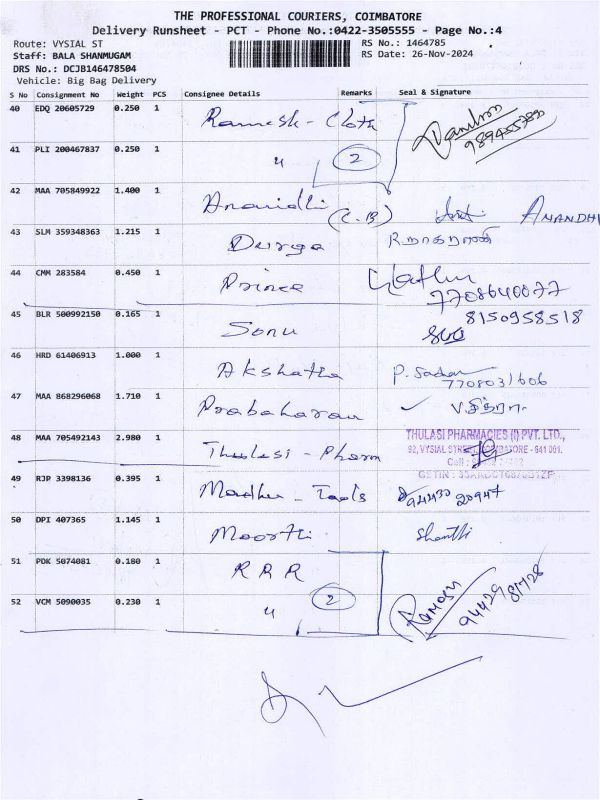 THE PROFESSIONAL COURIERS, COIMBATORE
Delivery Runsheet - PCT - Phone No.:0422-3505555 - Page No.:4
Route: VYSIAL ST RS No.: 1464785
Staff: BALA SHANMUGAM RS Date: 26-Nov-2024
DRS No.: DCJB146478504
Vehicle: Big Bag Delivery
S No Consignment No Weight PCS Consignee Details Remarks Seal & Signature
40 EDQ 20605729 0.250 1 Ramesh - Cloth
41 PLI 200467837 0.250 1 " 2
42 MAA 705849922 1.400 1 Ananidhi (C.B) ANANDHI
43 SLM 359348363 1.215 1 Durga
44 CMM 283584 0.450 1 Prince 7708640077
45 BLR 500992150 0.165 1 Sonu 8150958518
46 HRD 61406913 1.000 1 Akshatha 7708031606
47 MAA 868296068 1.710 1 Prabaharan ✓
48 MAA 705492143 2.980 1 Thulasi - Pharm THULASI PHARMACIES (I) PVT. LTD.,
92, VYSIAL STREET, COIMBATORE - 641 001.
49 RJP 3398136 0.395 1 Madhu - Tools 94430 20947
50 DPI 407365 1.145 1 Moorthi Shanthi
51 PDK 5074081 0.180 1 RRR
52 VCM 5090035 0.230 1 " 2 Ramesh 94429 81728